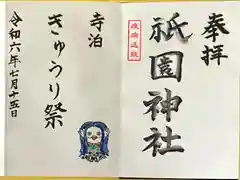 奉拝
疫病退散
祇園神社
寺泊
きゅうり祭
令和六年七月十五日